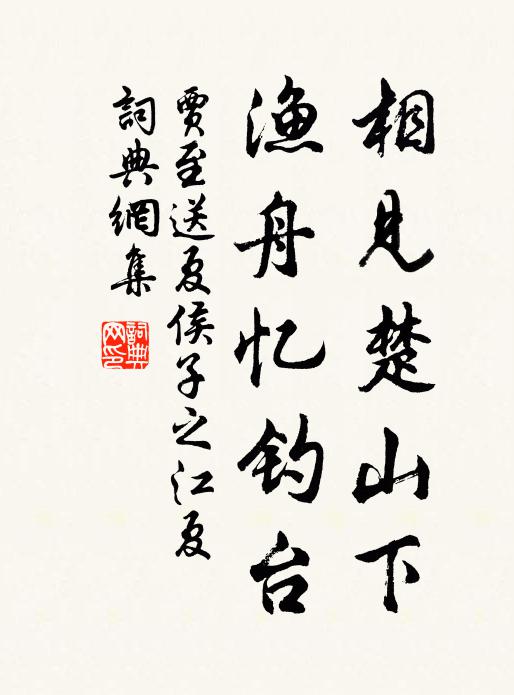 相见楚山下
渔舟忆钓台
賈至送夏侯子之江夏
詞典網集
詞典
网印